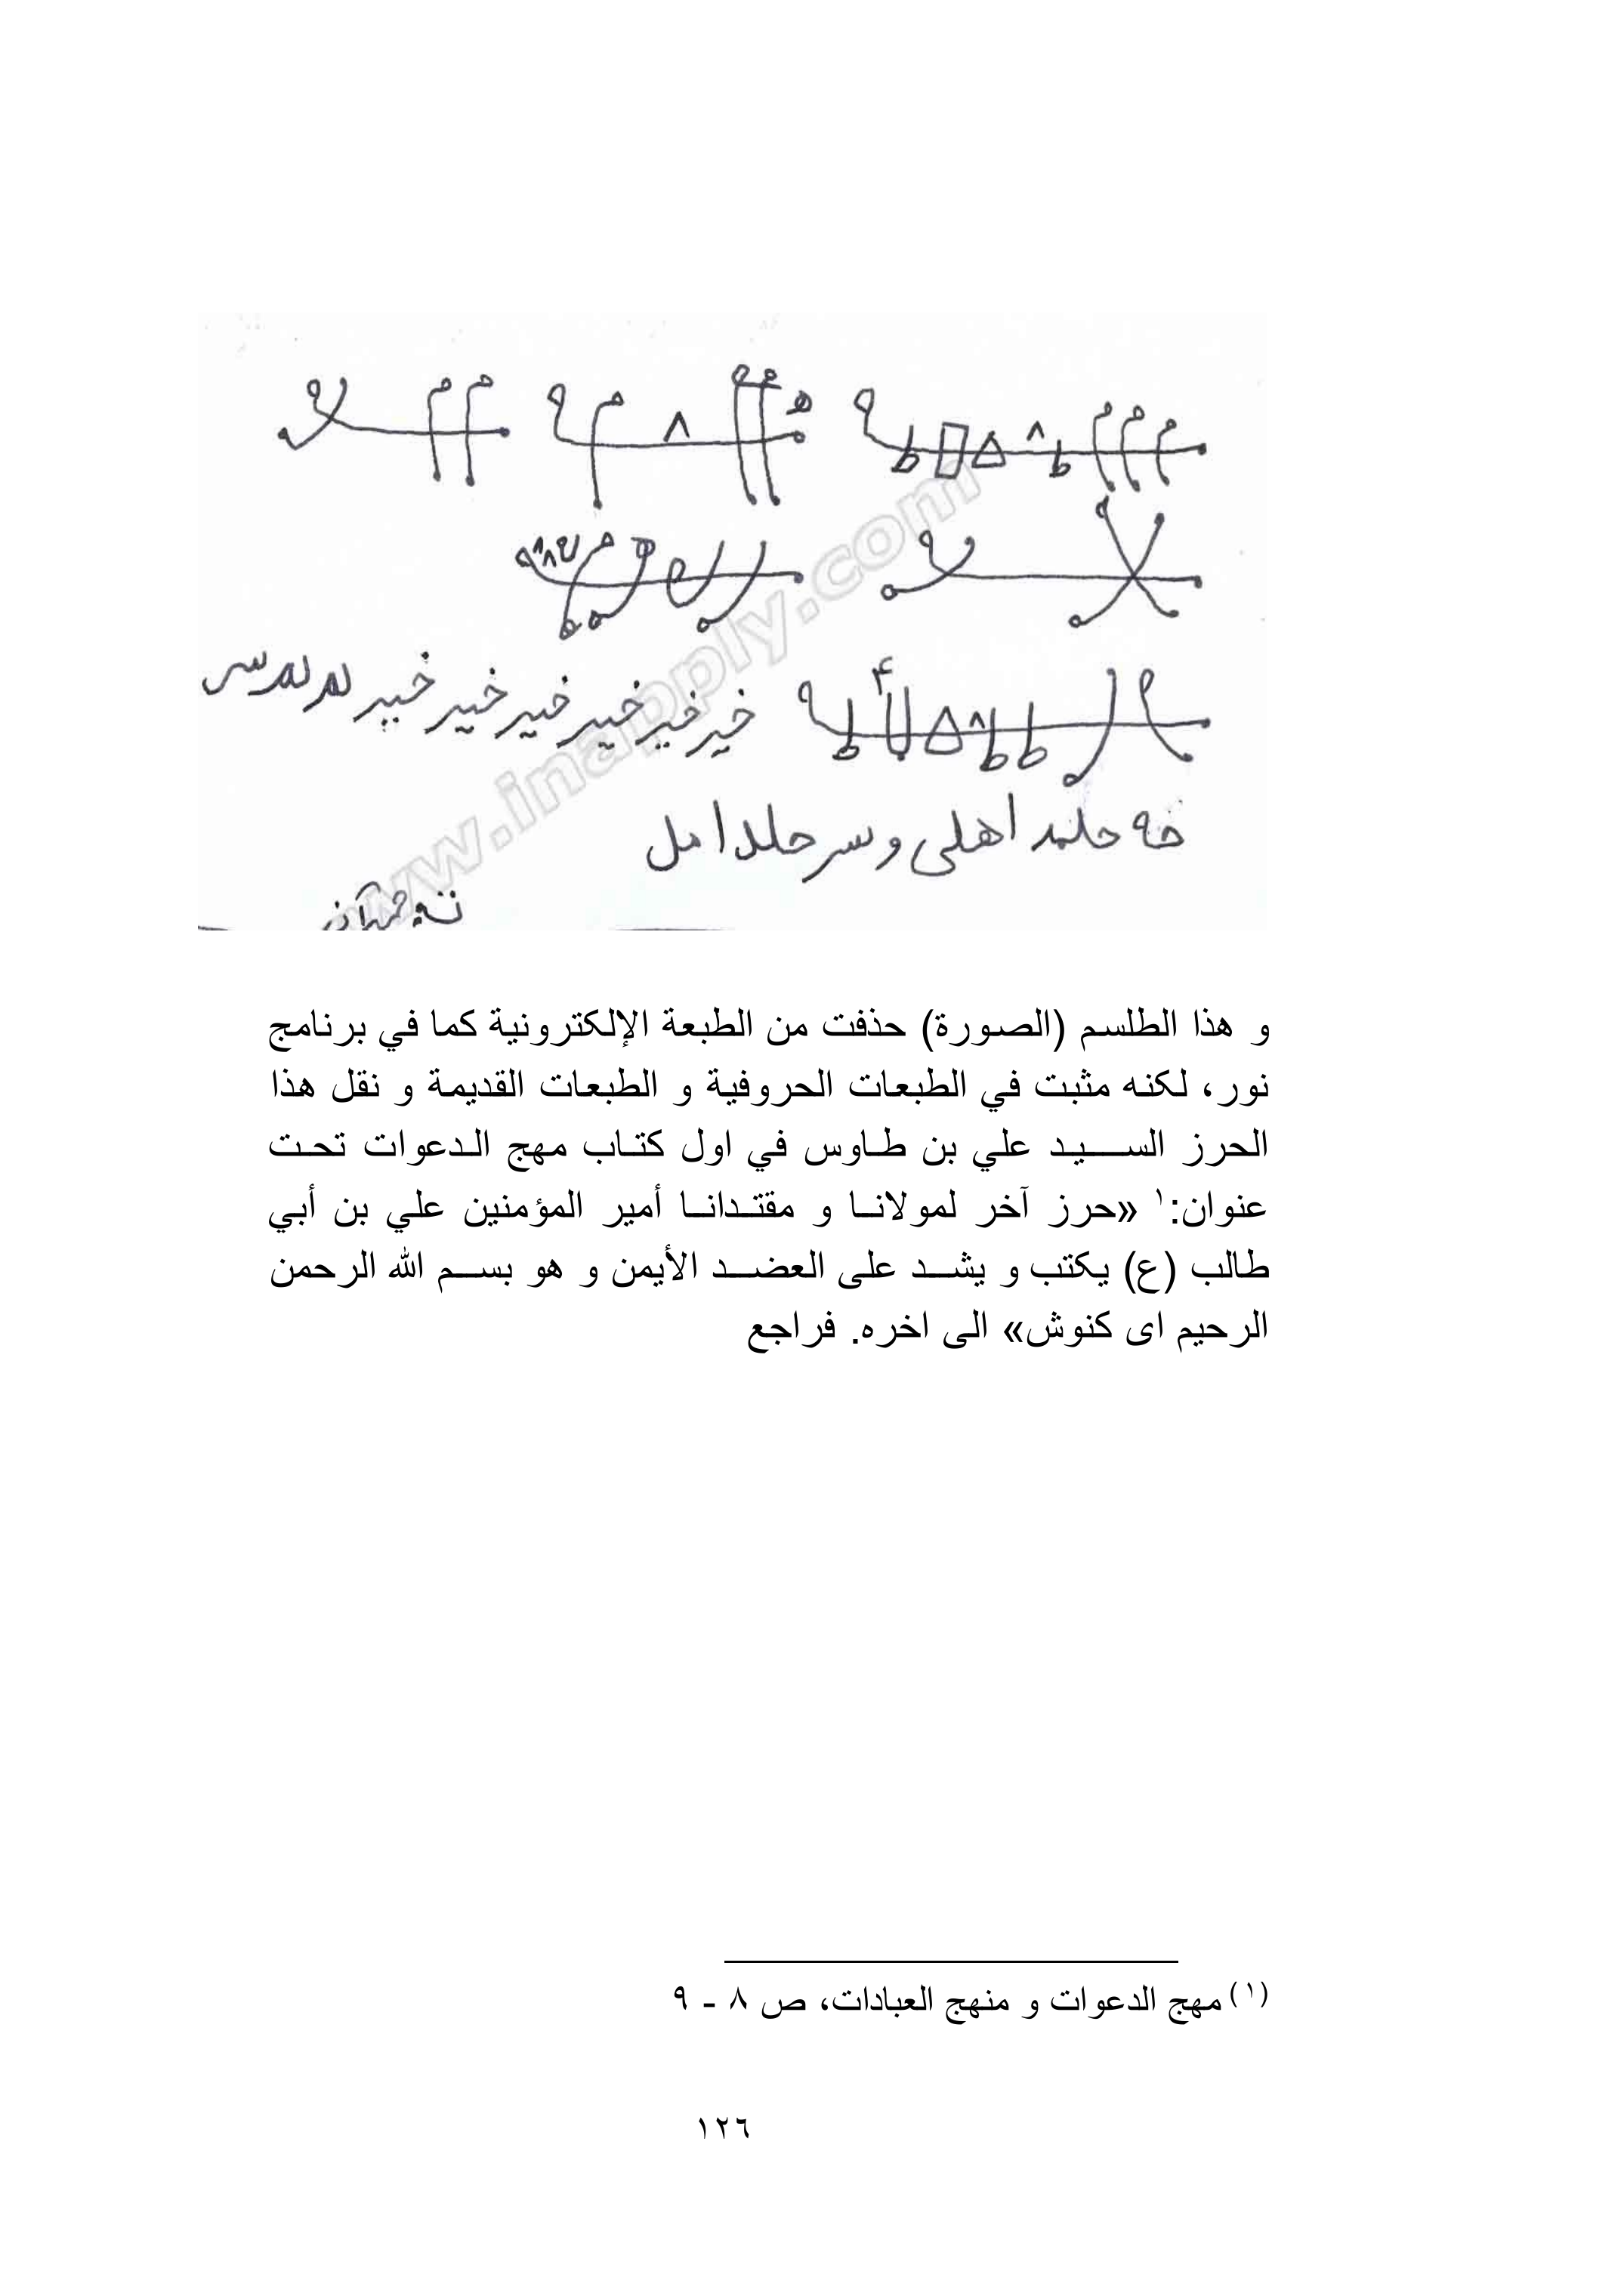 خير خير خير خير خير خيبر
اهلى وسر حلدامل
www.inapply.com
و هذا الطلسم (الصورة) حذفت من الطبعة الإلكترونية كما في برنامج
نور، لكنه مثبت في الطبعات الحروفية و الطبعات القديمة و نقل هذا
الحرز السيد علي بن طاوس في اول كتاب مهج الدعوات تحت
عنوان:١ «حرز آخر لمولانا و مقتدانا أمير المؤمنين علي بن أبي
طالب (ع) يكتب و يشد على العضد الأيمن و هو بسم الله الرحمن
الرحيم اى كنوش» الى اخره. فراجع
(١) مهج الدعوات و منهج العبادات، ص ٨ - ٩
١٢٦